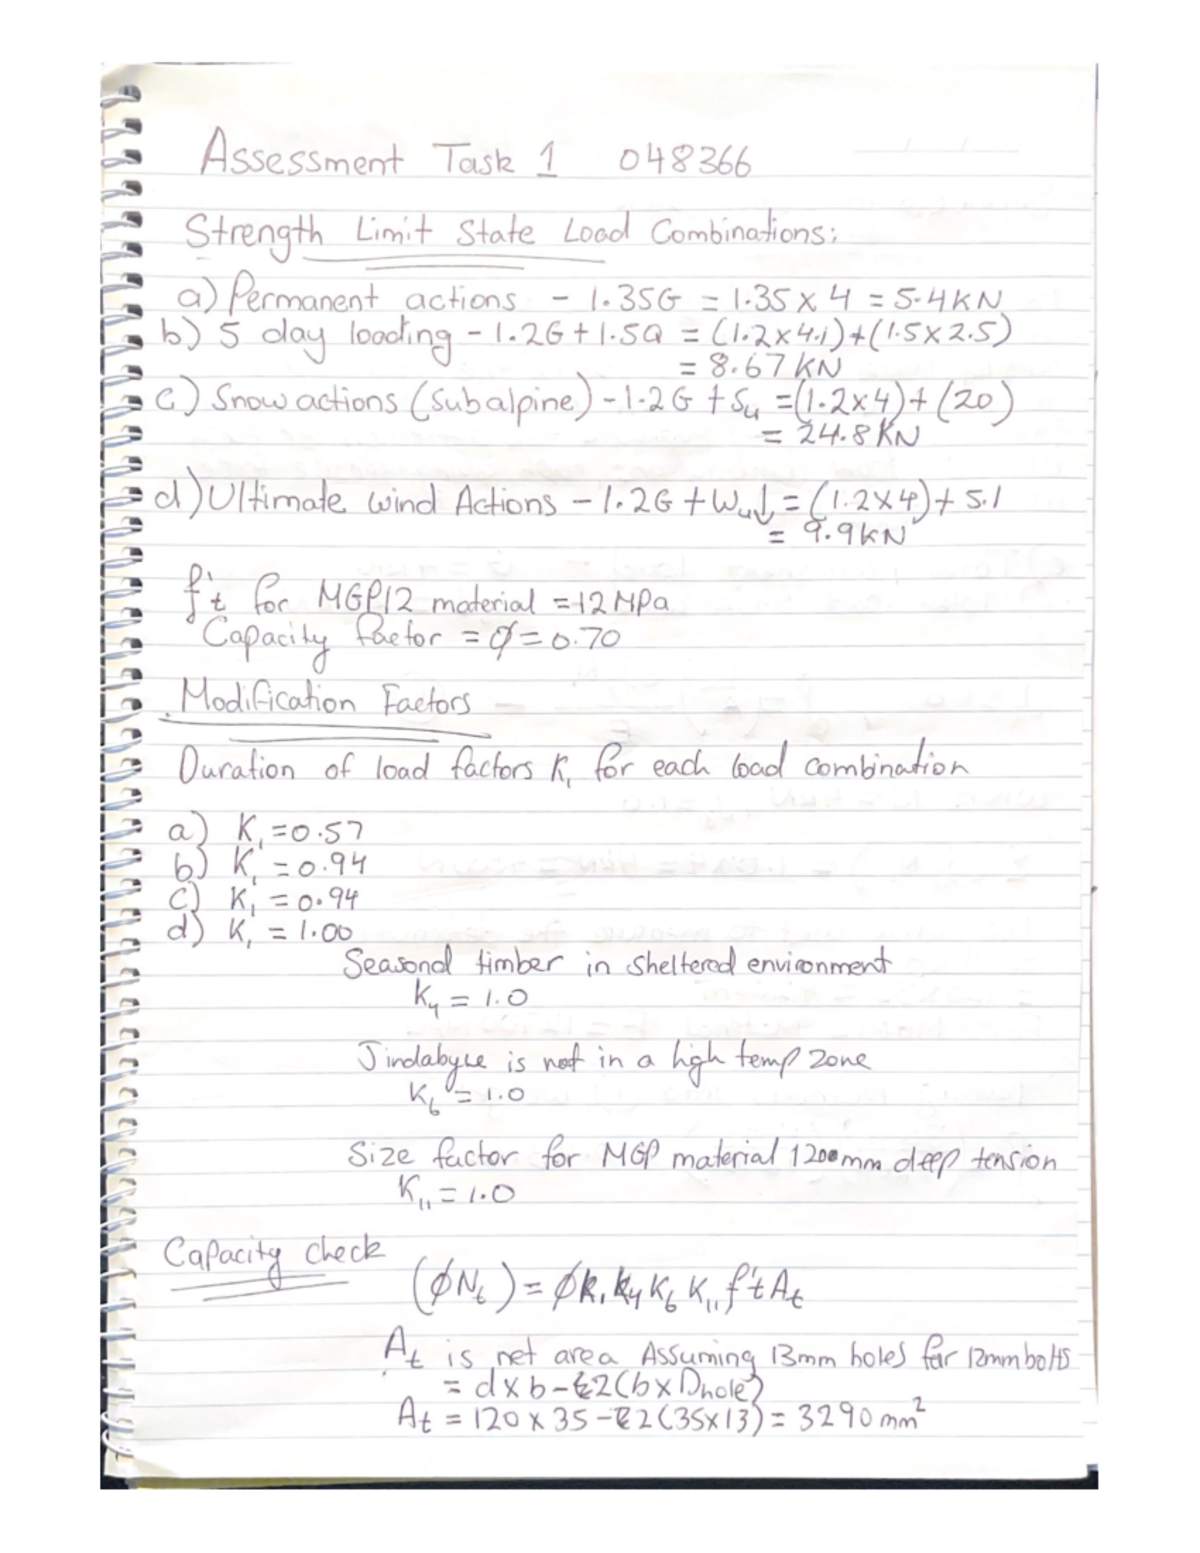 Assessment Task 1 048366
Strength Limit State Load Combinations:
a) Permanent actions - 1.35G = 1.35 x 4 = 5.4KN
b) 5 day loading - 1.2G + 1.5Q = (1.2x4.1)+(1.5x2.5)
= 8.67KN
c) Snow actions (subalpine) - 1.2G + Su =(1.2x4)+(20)
= 24.8KN
d) Ultimate wind Actions - 1.2G + Wu↓ = (1.2x4)+ 5.1
= 9.9KN
f't for MGP12 material = 12MPa
Capacity factor = Ø = 0.70
Modification Factors
Duration of load factors K₁ for each load combination
a) K₁ = 0.57
b) K₁ = 0.94
c) K₁ = 0.94
d) K₁ = 1.00
Seasonal timber in sheltered environment
K₄ = 1.0
Jindabyne is not in a high temp zone
K₆ = 1.0
Size factor for MGP material 120mm deep tension
K₁₁ = 1.0
Capacity check
(ØNt) = Øk₁k₄K₆K₁₁f'tAt
At is net area Assuming 13mm holes for 12mm bolts
= d x b - 2(b x Dhole)
At = 120 x 35 - 2(35x13) = 3290mm²